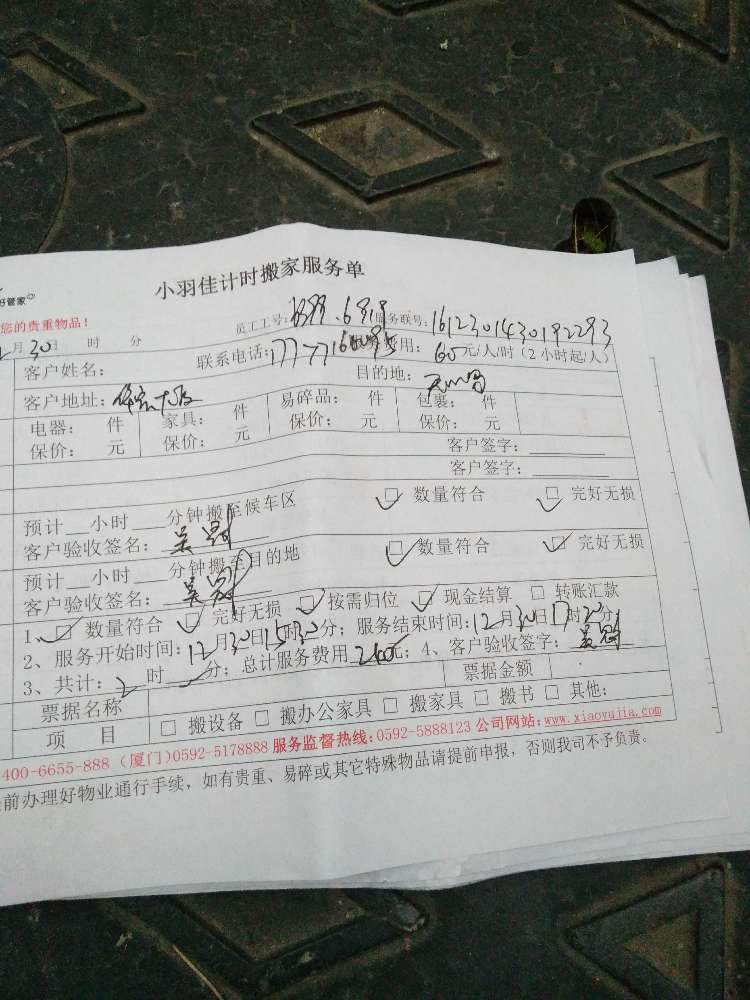 好管家
小羽佳计时搬家服务单
您的贵重物品！
员工工号： 服务联号：1612301430192293
月30日 时 分 联系电话： 用：60元/人/时（2小时起/人）
客户姓名： 目的地：
客户地址：
电器： 件 家具： 件 易碎品： 件 包裹： 件
保价： 元 保价： 元 保价： 元 保价： 元
客户签字：
客户签字：
预计__小时___分钟搬至候车区 ☑ 数量符合 ☑ 完好无损
客户验收签名：吴
预计__小时___分钟搬至目的地 ☑ 数量符合 ☑ 完好无损
客户验收签名：吴
1、☑ 数量符合 ☑ 完好无损 ☑ 按需归位 ☑ 现金结算 □ 转账汇款
2、服务开始时间：12月30日15时30分；服务结束时间：12月30日17时 分
3、共计：2时 分；总计服务费用240元；4、客户验收签字：吴
票据名称 票据金额
项 目 □ 搬设备 □ 搬办公家具 □ 搬家具 □ 搬书 □ 其他:
400-6655-888（厦门）0592-5178888 服务监督热线:0592-5888123 公司网站:www.xiaoyujia.com
前办理好物业通行手续，如有贵重、易碎或其它特殊物品请提前申报，否则我司不予负责。